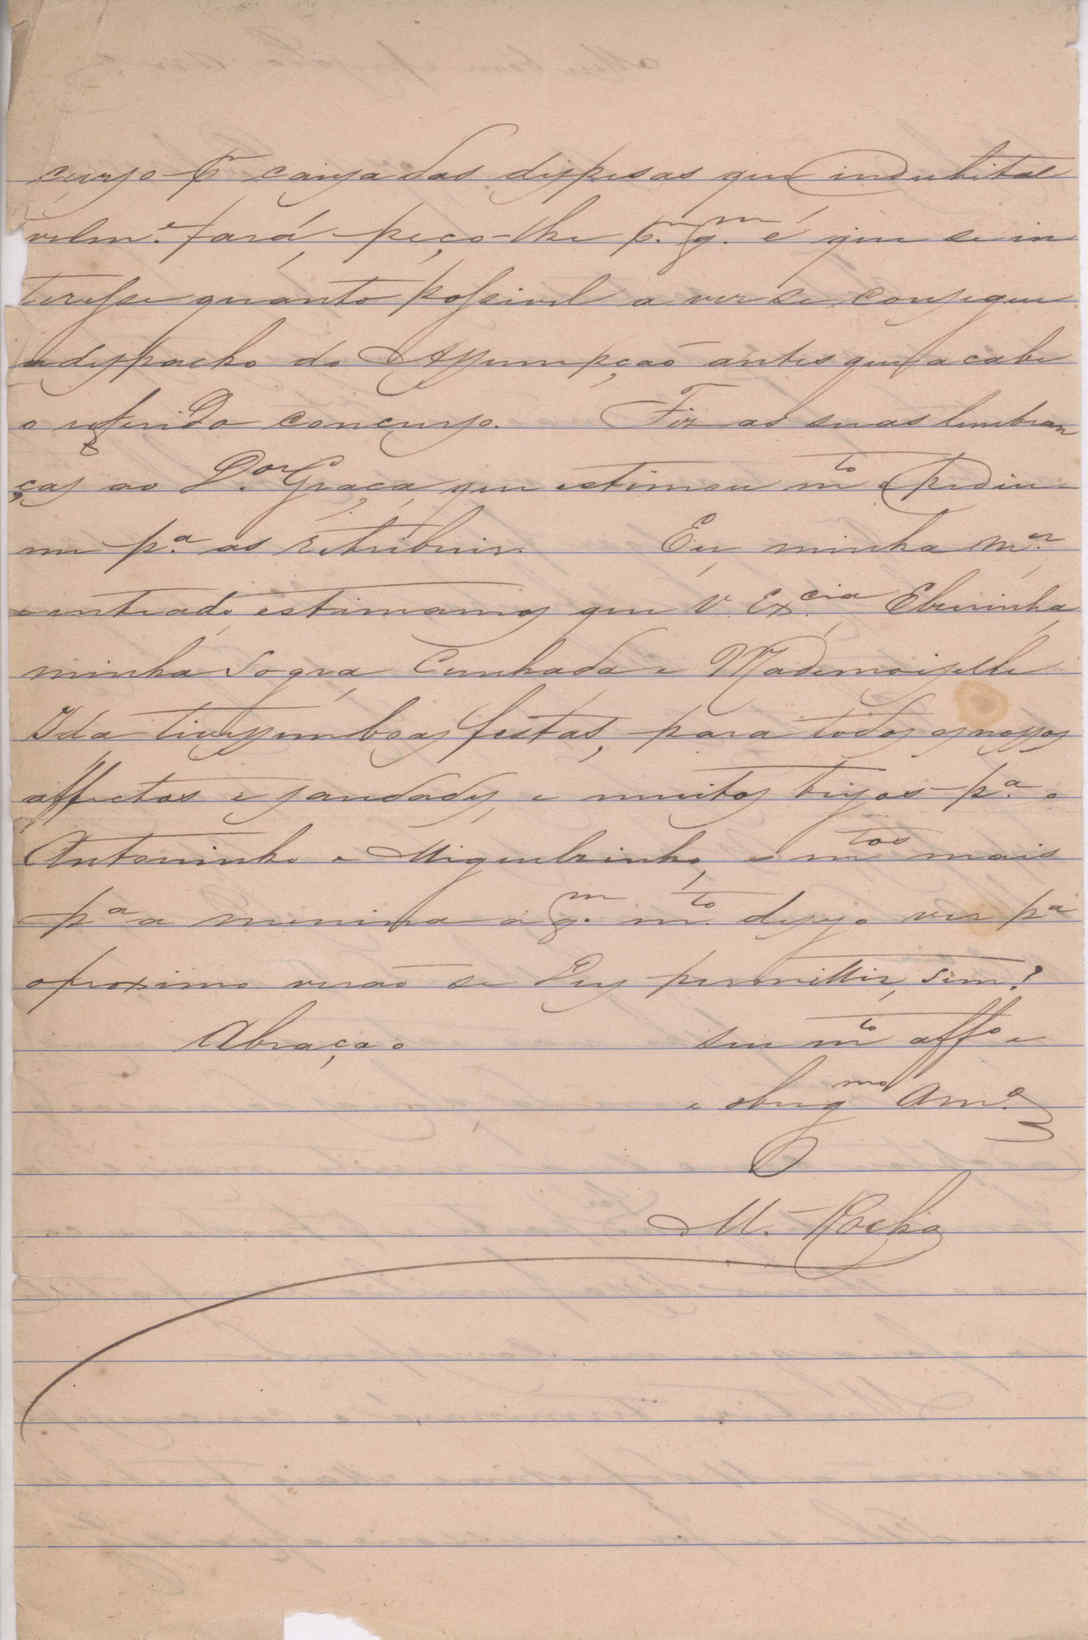 curso p.r causa das dispesas que indubita
velm.e fará, peço-lhe p.r q.m é que se in
teresse quanto possivel a ver se consegue
o despacho do Assumpção antes que acabe
o referido concurso. Fiz as suas lembran
ças ao D.or Graça, que estimou m.to e pediu-
me p.a as retribuir. Eu, minha M.er
e entiado estimamos que V. Ex.cia,
minha Sogra, Cunhada e Mademoiselle
Ida tivessem boas festas, para todos os nossos
affectos e saudades, e muitos beijos p.a o
Antoninho e Miguelzinho, e m.tos mais
p.a a menina a q.m m.to desejo ver p.a
o proximo verão se Deus permittir, sim?
Abraça o seu m.to aff.o e
e obrig.mo Am.o
M. Rocha